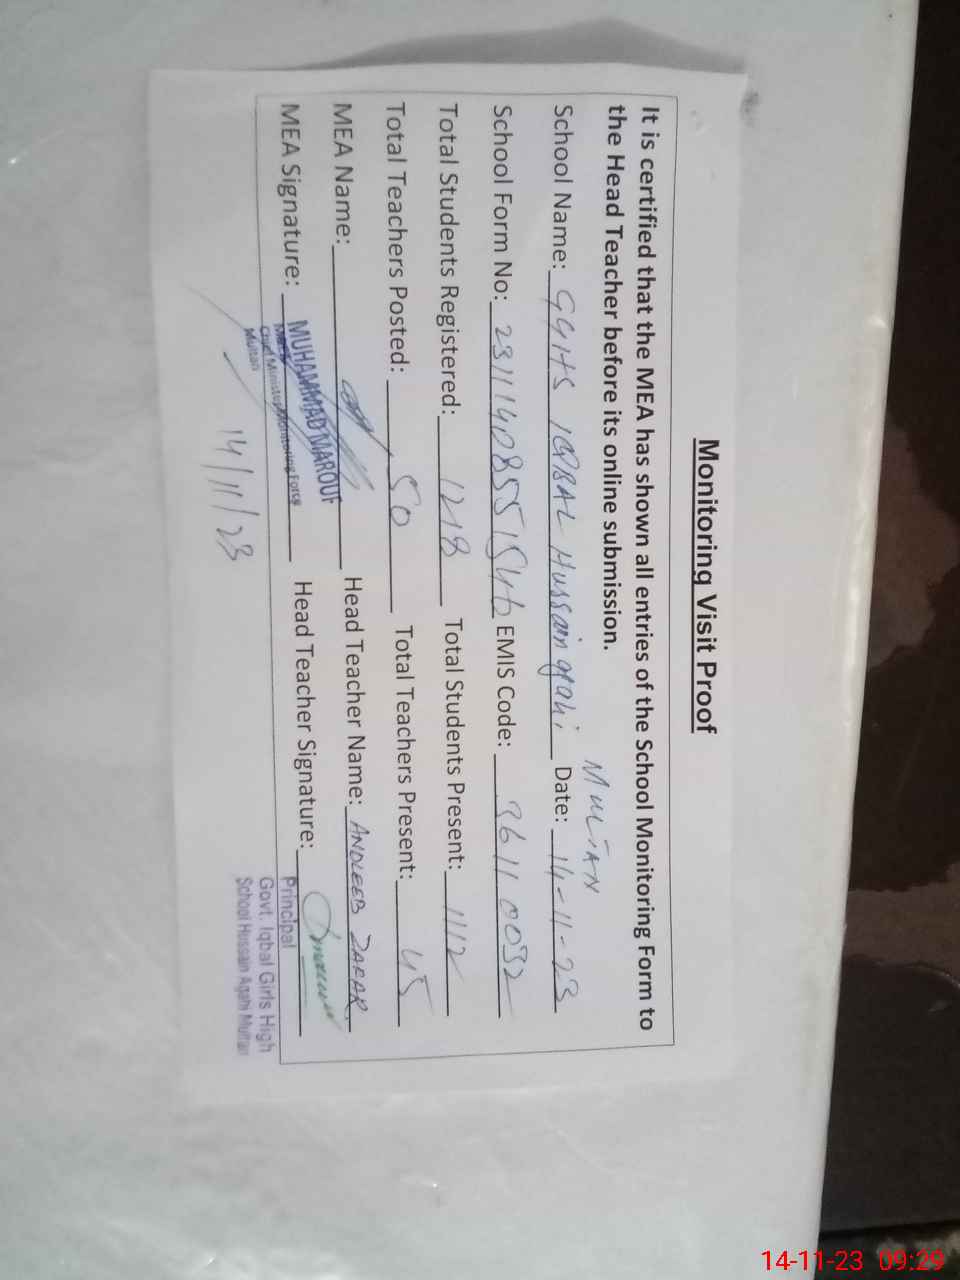 Monitoring Visit Proof
It is certified that the MEA has shown all entries of the School Monitoring Form to
the Head Teacher before its online submission.
MULTAN
School Name: GGHS IQBAL Hussain agahi Date: 14-11-23
School Form No: 23111408551546 EMIS Code: 36110032
Total Students Registered: 1218 Total Students Present: 1112
Total Teachers Posted: 50 Total Teachers Present: 45
MEA Name: Head Teacher Name: ANDLEEB ZAFAR
MEA Signature: MUHAMMAD MAROUF Head Teacher Signature:
Chief Minister Monitoring Force
Multan
14/11/23
Principal
Govt. Iqbal Girls High
School Hussain Agahi Multan
14-11-23 09:29